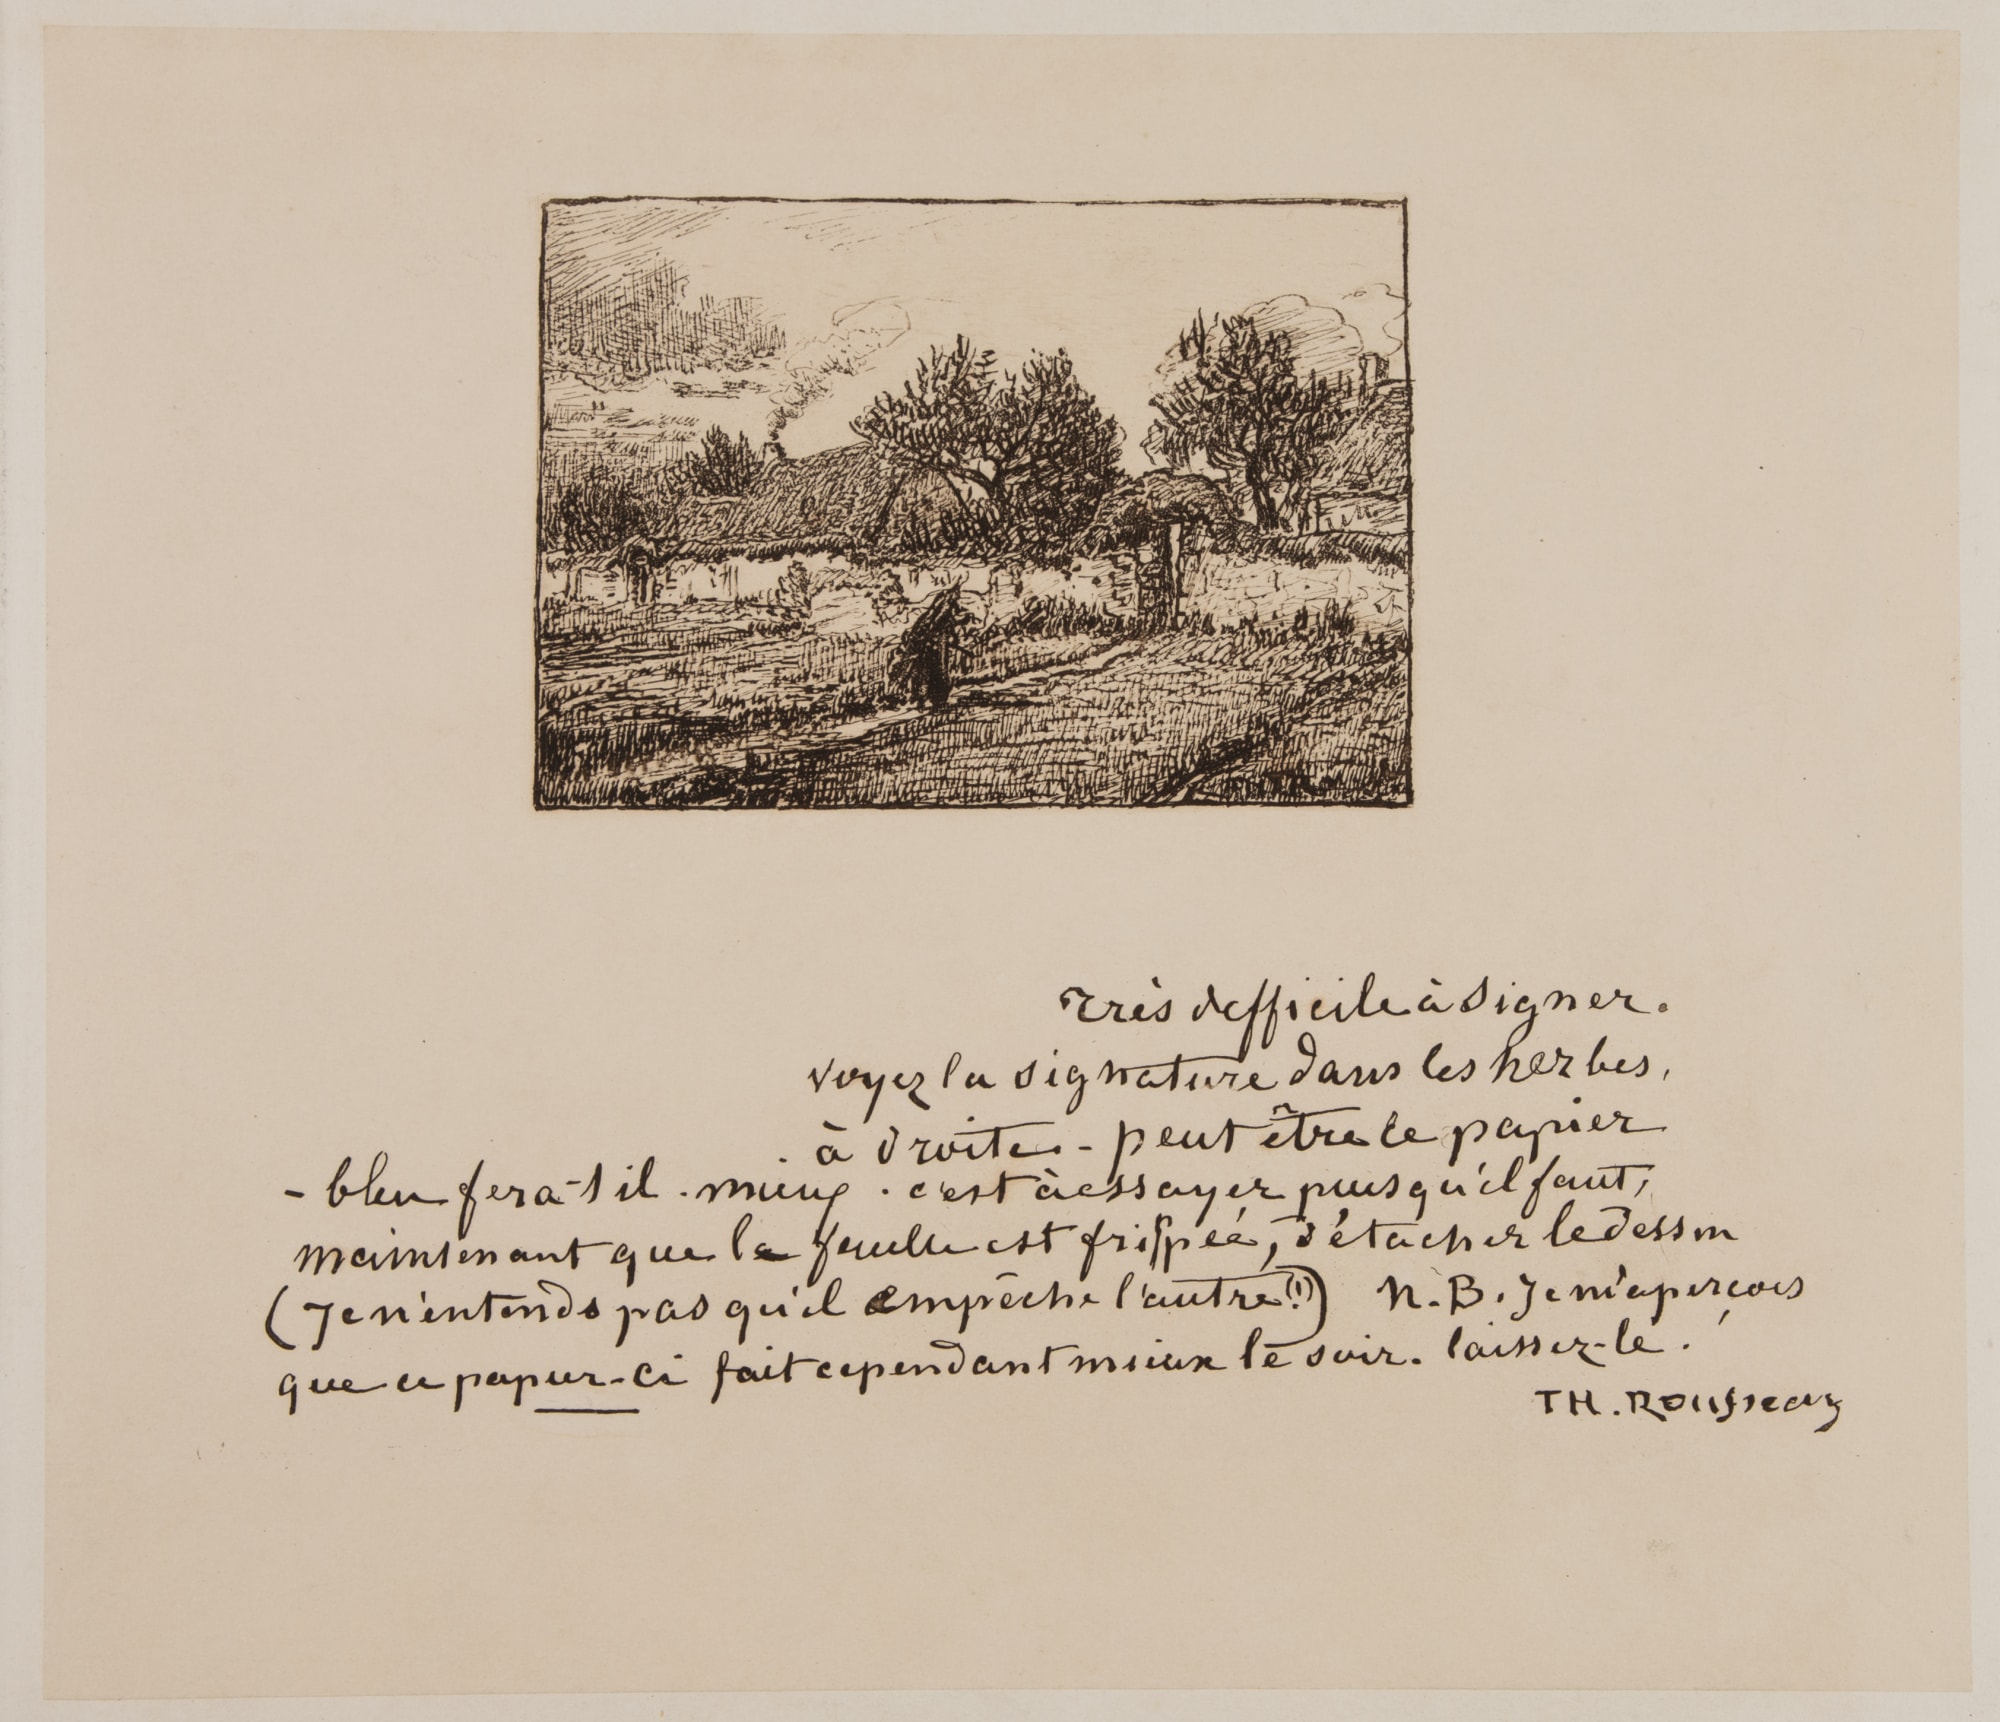 Très difficile à signer.
voyez la signature dans les herbes,
à droite. - peut être le papier
- bleu fera-t il. mieux. c'est à essayer puisqu'il faut,
maintenant que la feuille est frippée, détacher le dessin
(Je n'entends pas qu'il empêche l'autre!) N.B. Je m'aperçois
que ce papier-ci fait cependant mieux le soir. laissez-le.
TH. ROUSSEAU